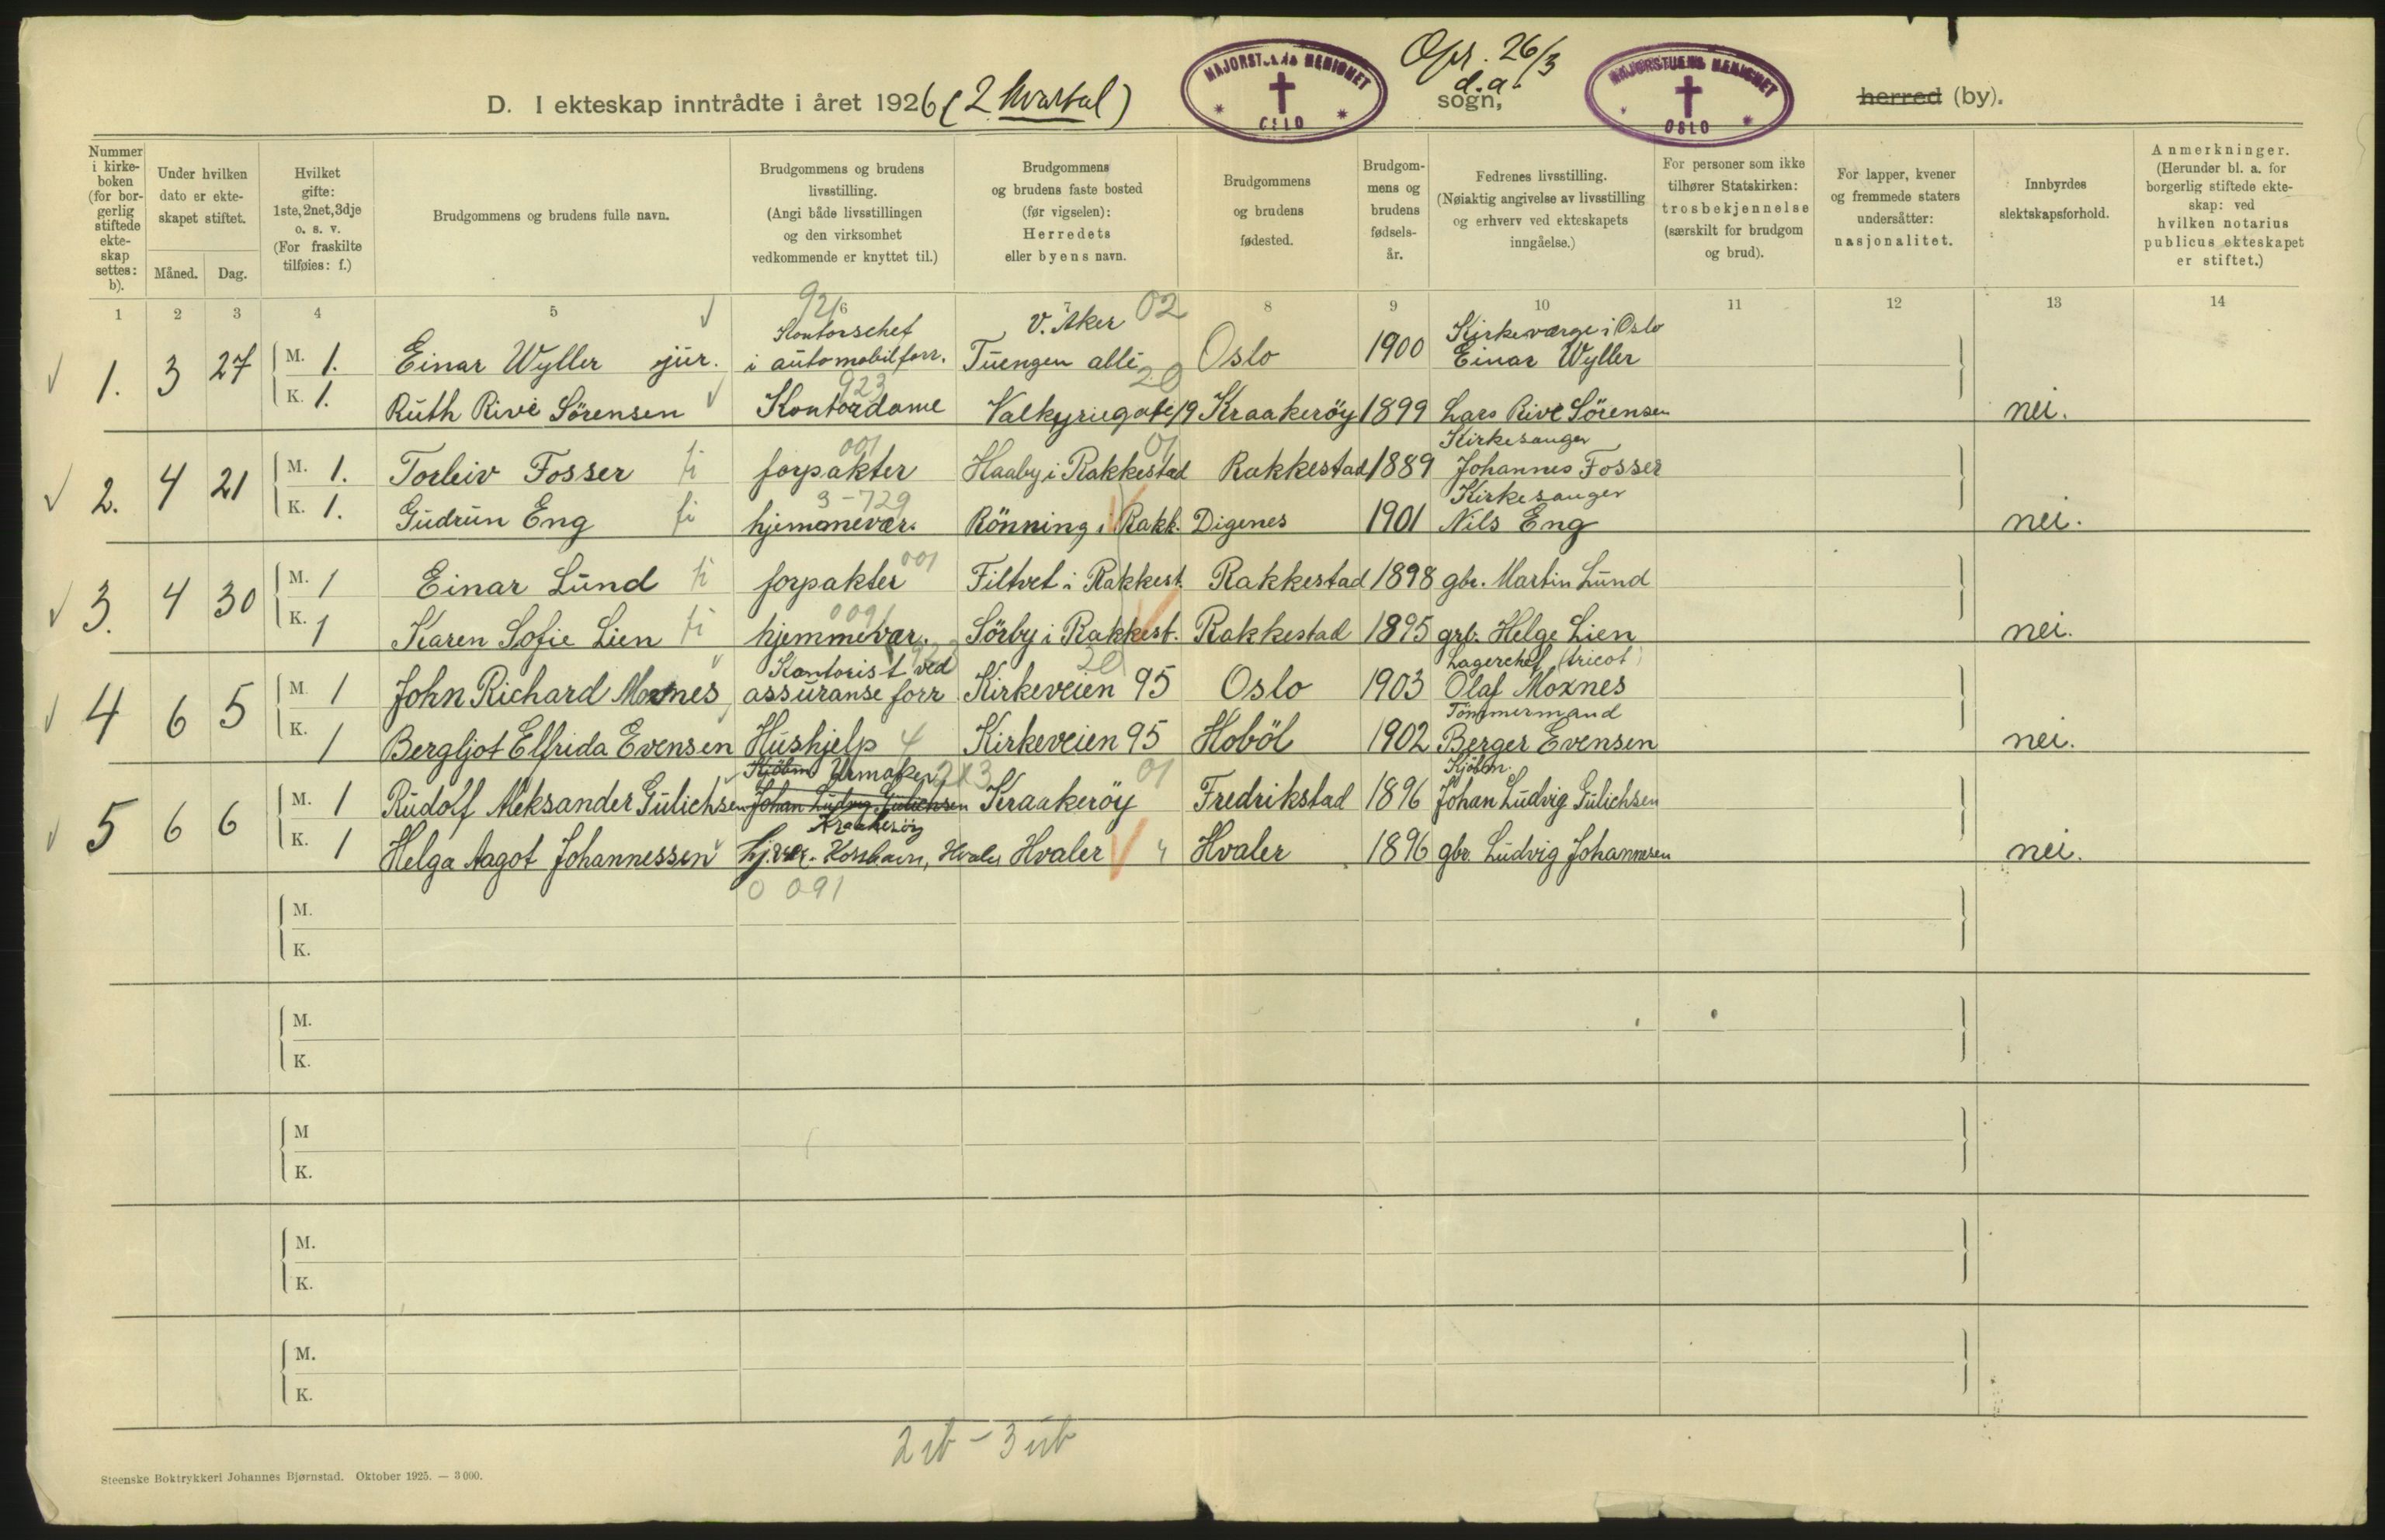 Opr. 26/3
d.a.
D. I ekteskap inntrådte i året 1926 (2 kvartal)
MAJORSTUENS MENIGHET
OSLO
sogn,
MAJORSTUENS MENIGHET
OSLO
herred (by).
Nummer i kirke-boken (for bor-gerlig stiftede ekte-skap settes: b).
Under hvilken dato er ekte-skapet stiftet.
Måned. Dag.
Hvilket gifte: 1ste, 2net, 3dje o. s. v. (For fraskilte tilføies: f.)
Brudgommens og brudens fulle navn.
Brudgommens og brudens livsstilling. (Angi både livsstillingen og den virksomhet vedkommende er knyttet til.)
Brudgommens og brudens faste bosted (før vigselen): Herredets eller byens navn.
Brudgommens og brudens fødested.
Brudgom-mens og brudens fødsels-år.
Fedrenes livsstilling. (Nøiaktig angivelse av livsstilling og erhverv ved ekteskapets inngåelse.)
For personer som ikke tilhører Statskirken: trosbekjennelse (særskilt for brudgom og brud).
For lapper, kvener og fremmede staters undersåtter: nasjonalitet.
Innbyrdes slektskapsforhold.
Anmerkninger. (Herunder bl. a. for borgerlig stiftede ekte-skap: ved hvilken notarius publicus ekteskapet er stiftet.)
1 2 3 4 5 6 7 8 9 10 11 12 13 14
921 02
Kontorschef V. Aker Kirkeværge i Oslo
1. 3 27 M. 1. Einar Wyller jur. i automobilforr. Tuengen allé Oslo 1900 Einar Wyller
923 20
K. 1. Ruth Rivé Sörensen Kontordame Valkyriegate 19 Kraakeröy 1899 Lars Rive Sörensen nei.
001 01 Kirkesanger
2. 4 21 M. 1. Torleiv Fosser fi forpakter Haaby i Rakkestad Rakkestad 1889 Johannes Fosser
3-729 Kirkesanger
K. 1. Gudrun Eng fi hjemmevær. Rönning i Rakk. Digenes 1901 Nils Eng nei.
001
3. 4 30 M. 1 Einar Lund fi forpakter Filtvet i Rakkest. Rakkestad 1898 gbr. Martin Lund
0091
K. 1 Karen Sofie Lien fi hjemmevær. Sörby i Rakkest. Rakkestad 1895 grb. Helge Lien nei.
Kontorist ved 20 Lagerchef (tricot)
4 6 5 M. 1 John Richard Moxnes assuranse forr Kirkeveien 95 Oslo 1903 Olaf Moxnes
Tömmermand
K. 1 Bergljot Elfrida Evensen Hushjelp 4 Kirkeveien 95 Hoböl 1902 Berger Evensen nei.
Kjöbm Urmaker 213 01 Kjöbm.
5 6 6 M. 1 Rudolf Aleksander Gulichsen Johan Ludvig Gulichsen Kraakeröy Fredrikstad 1896 Johan Ludvig Gulichsen
Krakkeröy
K. 1 Helga Aagot Johannessen hj.vær. Korshavn, Hvaler Hvaler 4 Hvaler 1896 gbr. Ludvig Johannesen nei.
0 091
M.
K.
M.
K.
M
K.
M.
K.
M.
K.
2 ib - 3 üb
Steenske Boktrykkeri Johannes Bjørnstad. Oktober 1925. — 3 000.